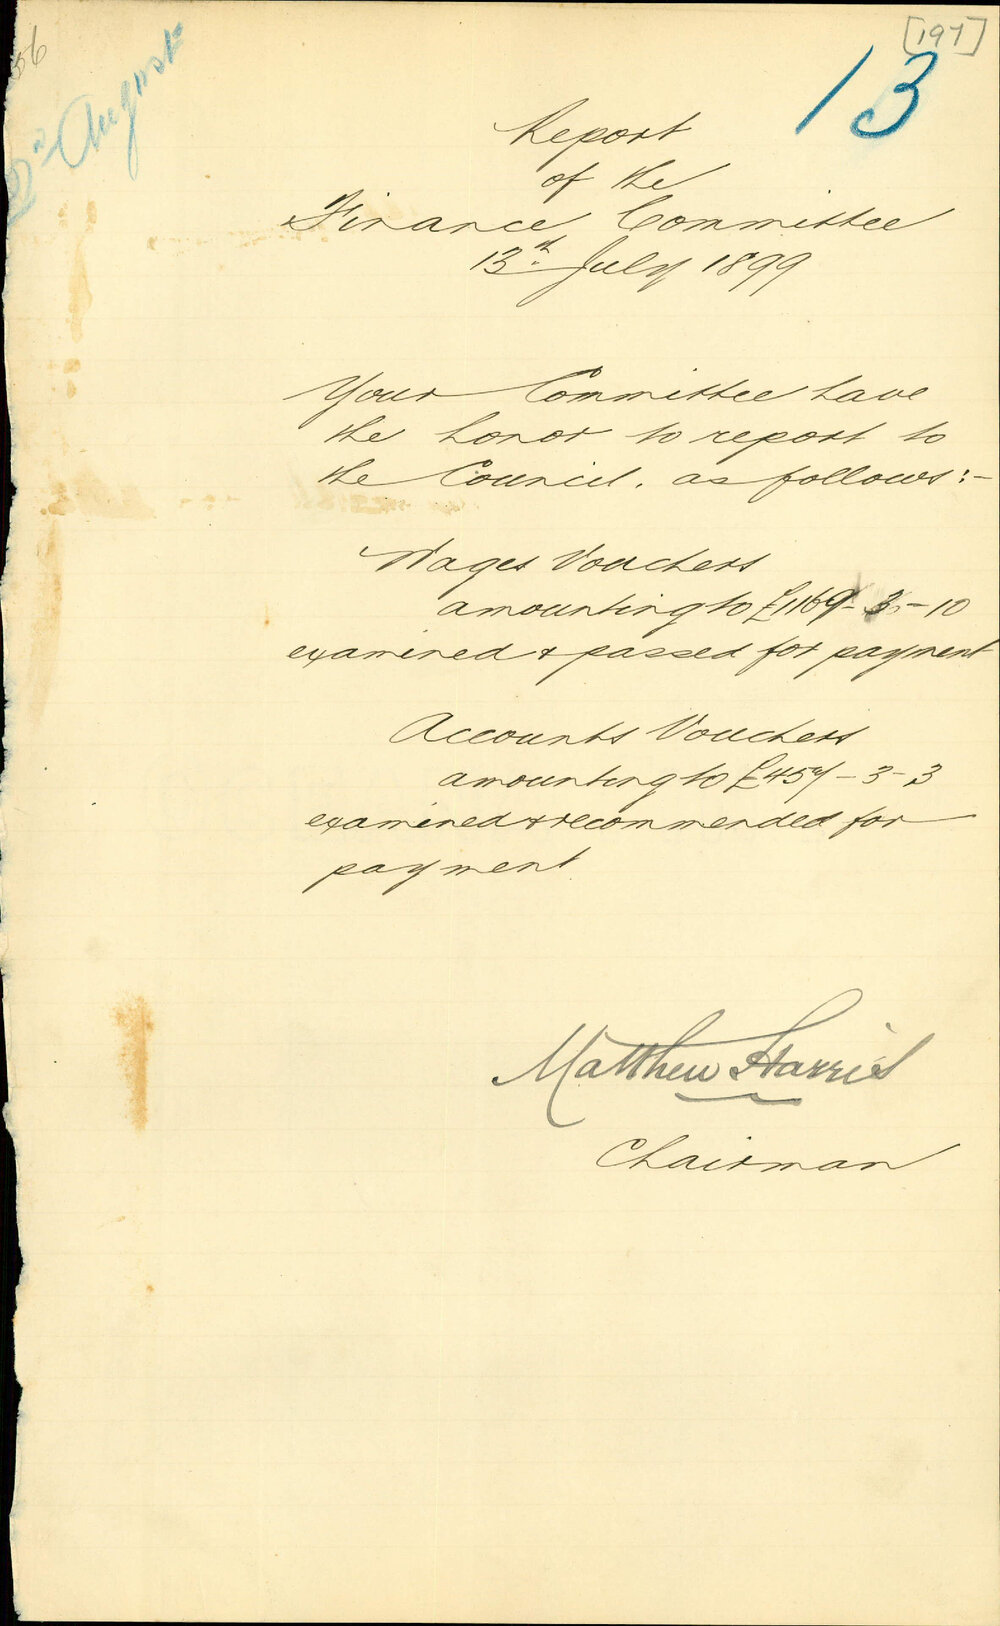 [197]
13
56
2nd August
Report
of the
Finance Committee
13th July 1899
Your Committee have
the honor to report to
the Council. as follows:-
Wages Vouchers
amounting to £1169-3-10
examined & passed for payment
Accounts Vouchers
amounting to £457-3-3
examined & recommended for
payment
Matthew Harris
Chairman